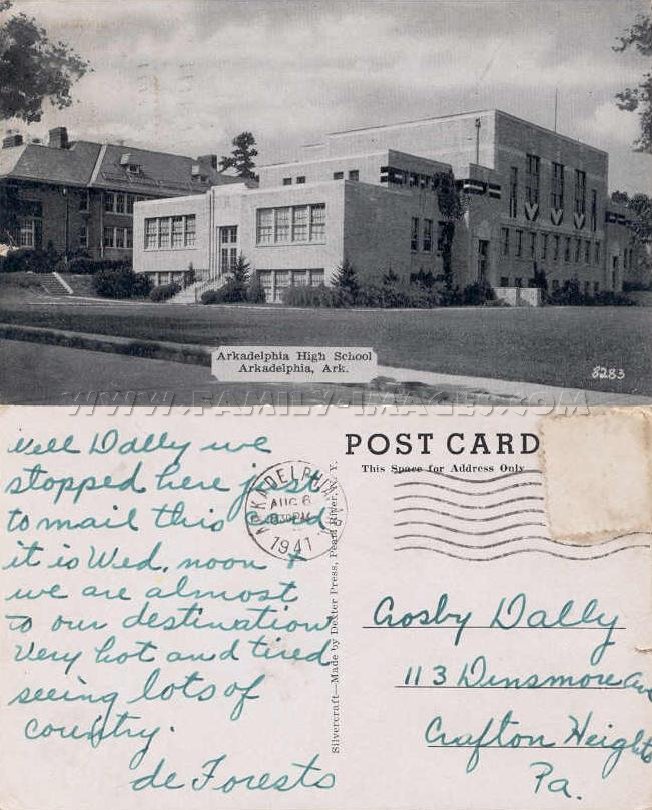 Arkadelphia High School
Arkadelphia, Ark.
8283
WWW.FAMILY-IMAGES.COM
Well Dally we
stopped here just
to mail this
it is Wed. noon +
we are almost
to our destination
Very hot and tired
seeing lots of
country.
de Forests
ARKADELPHIA
AUG 6
1941
Silvercraft—Made by Dexter Press, Pearl River, N. Y.
POST CARD
This Space for Address Only
Crosby Dally
113 Dinsmore Ave
Crafton Heights
Pa.